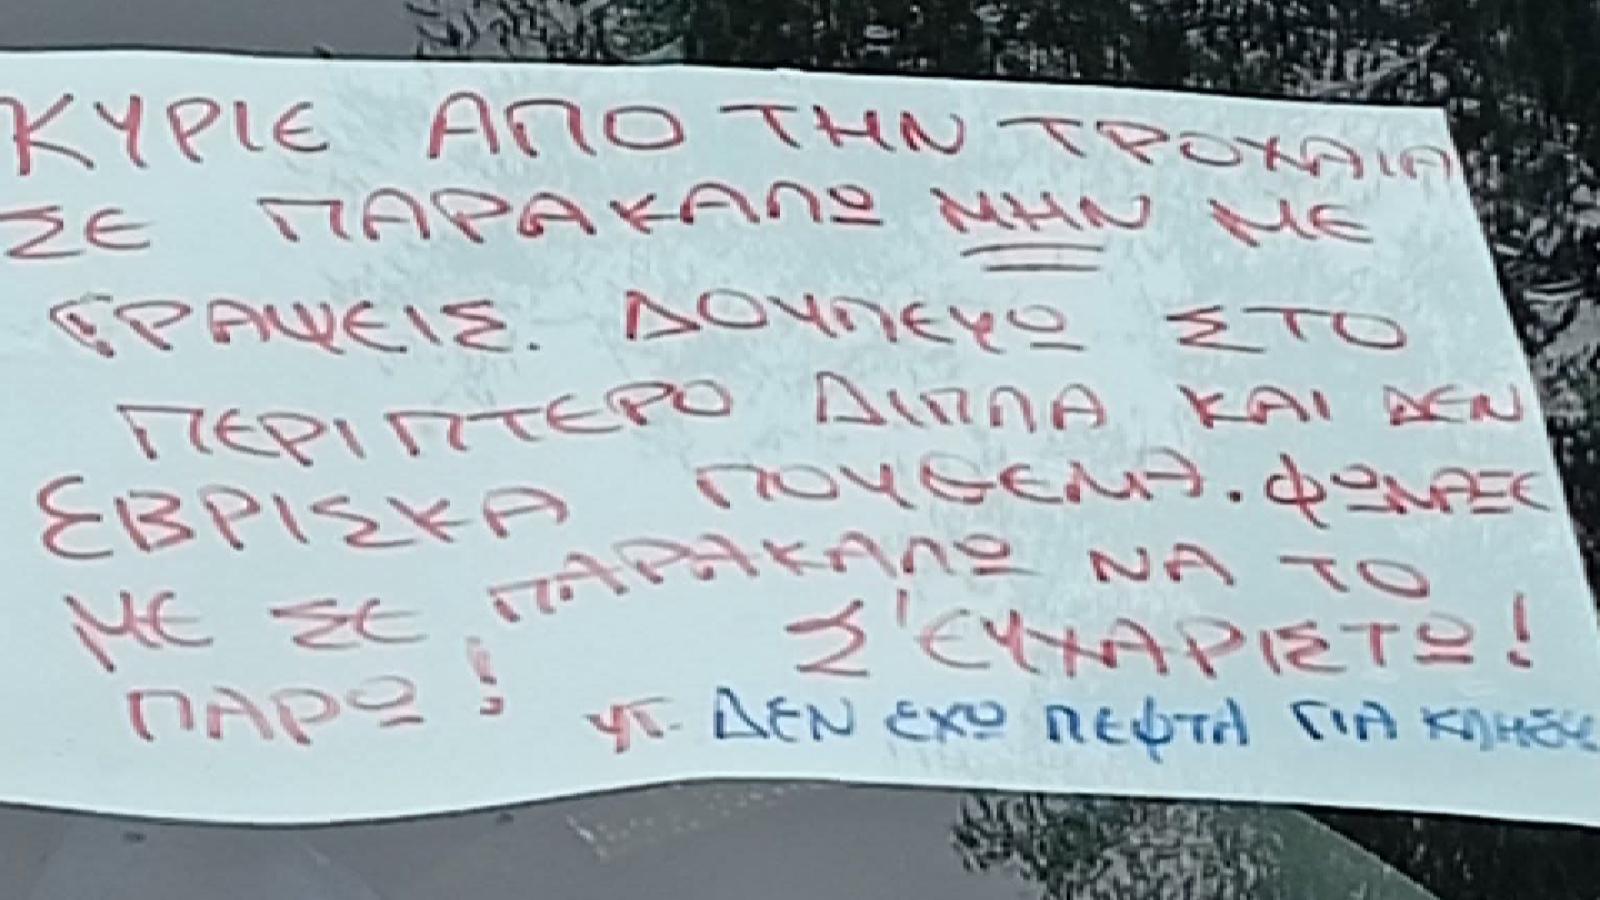 ΚΥΡΙΕ ΑΠΟ ΤΗΝ ΤΡΟΧΑΙΑ
ΣΕ ΠΑΡΑΚΑΛΩ ΜΗΝ ΜΕ
ΓΡΑΨΕΙΣ. ΔΟΥΛΕΥΩ ΣΤΟ
ΠΕΡΙΠΤΕΡΟ ΔΙΠΛΑ ΚΑΙ ΔΕΝ
ΕΒΡΙΣΚΑ ΠΟΥΘΕΝΑ. ΦΩΝΑΞΕ
ΜΕ ΣΕ ΠΑΡΑΚΑΛΩ ΝΑ ΤΟ
ΠΑΡΩ! Σ'ΕΥΧΑΡΙΣΤΩ!
ΥΓ. ΔΕΝ ΕΧΩ ΛΕΦΤΑ ΓΙΑ